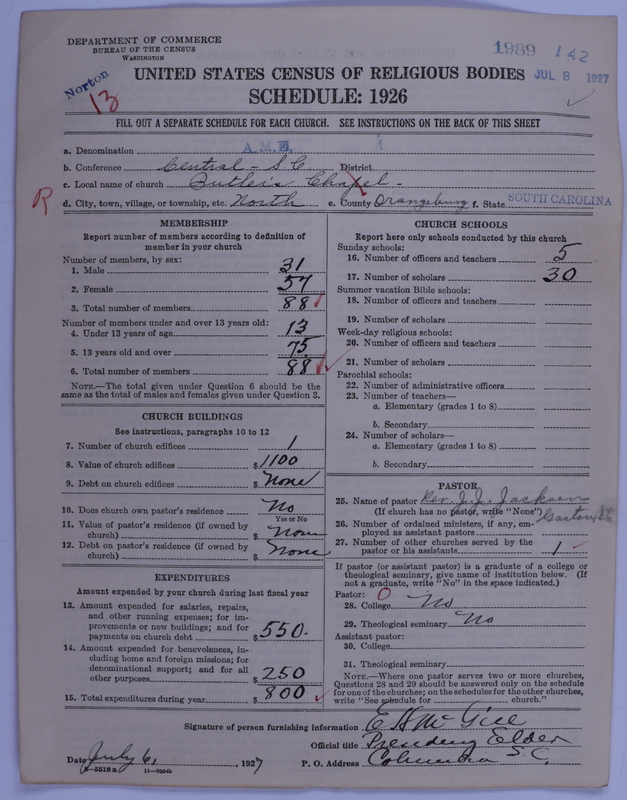 DEPARTMENT OF COMMERCE
BUREAU OF THE CENSUS
WASHINGTON
1989 142
Norton
13
UNITED STATES CENSUS OF RELIGIOUS BODIES JUL 8 1927
SCHEDULE: 1926
FILL OUT A SEPARATE SCHEDULE FOR EACH CHURCH. SEE INSTRUCTIONS ON THE BACK OF THIS SHEET
a. Denomination A.M.E.
b. Conference Central - S.C. District
c. Local name of church Butler's Chapel -
R
d. City, town, village, or township, etc. North e. County Orangeburg f. State SOUTH CAROLINA
MEMBERSHIP
Report number of members according to definition of
member in your church
Number of members, by sex:
1. Male 31
2. Female 57
3. Total number of members 88
Number of members under and over 13 years old:
4. Under 13 years of age 13
5. 13 years old and over 75
6. Total number of members 88
NOTE.—The total given under Question 6 should be
the same as the total of males and females given under Question 3.
CHURCH BUILDINGS
See instructions, paragraphs 10 to 12
7. Number of church edifices 1
8. Value of church edifices $1100
9. Debt on church edifices $None
10. Does church own pastor's residence No
Yes or No
11. Value of pastor's residence (if owned by
church) $None
12. Debt on pastor's residence (if owned by
church) $None
EXPENDITURES
Amount expended by your church during last fiscal year
13. Amount expended for salaries, repairs,
and other running expenses; for im-
provements or new buildings; and for
payments on church debt $550.
14. Amount expended for benevolences, in-
cluding home and foreign missions; for
denominational support; and for all
other purposes $250
15. Total expenditures during year $800
CHURCH SCHOOLS
Report here only schools conducted by this church
Sunday schools:
16. Number of officers and teachers 5
17. Number of scholars 30
Summer vacation Bible schools:
18. Number of officers and teachers
19. Number of scholars
Week-day religious schools:
20. Number of officers and teachers
21. Number of scholars
Parochial schools:
22. Number of administrative officers
23. Number of teachers—
a. Elementary (grades 1 to 8)
b. Secondary
24. Number of scholars—
a. Elementary (grades 1 to 8)
b. Secondary
PASTOR
25. Name of pastor Rev. J. J. Jackson
(If church has no pastor, write "None") Gaston, S.C.
26. Number of ordained ministers, if any, em-
ployed as assistant pastors
27. Number of other churches served by the
pastor or his assistants 1
If pastor (or assistant pastor) is a graduate of a college or
theological seminary, give name of institution below. (If
not a graduate, write "No" in the space indicated.)
Pastor: O
28. College No
29. Theological seminary No
Assistant pastor:
30. College
31. Theological seminary
NOTE.—Where one pastor serves two or more churches,
Questions 28 and 29 should be answered only on the schedule
for one of the churches; on the schedules for the other churches,
write "See schedule for church."
Signature of person furnishing information E H McGill
Official title Presiding Elder
Date July 6, 1927 P. O. Address Columbia S.C.
8-5518a 11—9024b